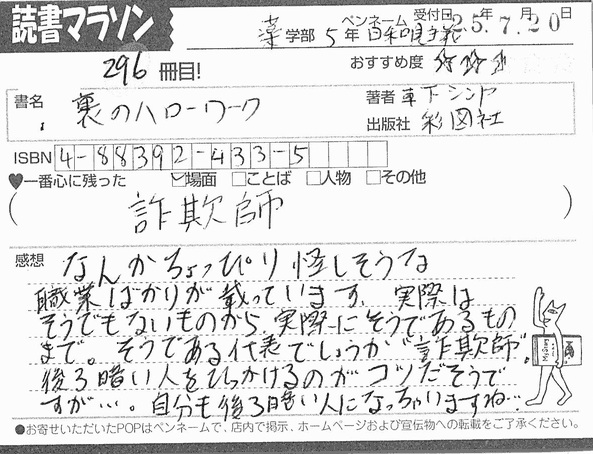 読書マラソン
ペンネーム 受付日 年 月 日
薬学部 5年 日和見主義 25.7.20
296冊目!
おすすめ度 ☆☆☆
書名 裏のハローワーク
著者 草下シンヤ
出版社 彩図社
ISBN 4-88392-433-5
♥一番心に残った ☑場面 □ことば □人物 □その他
(詐欺師)
感想 なんかちょっぴり怪しそうな
職業ばかりが載っています。実際は
そうでもないものから、実際にそうであるもの
まで。そうである代表でしょうか“詐欺師”。
後ろ暗い人をひっかけるのがコツだそうで
すが…。自分も後ろ暗い人になっちゃいますね…
●お寄せいただいたPOPはペンネームで、店内で掲示、ホームページおよび宣伝物への転載をご了承ください。